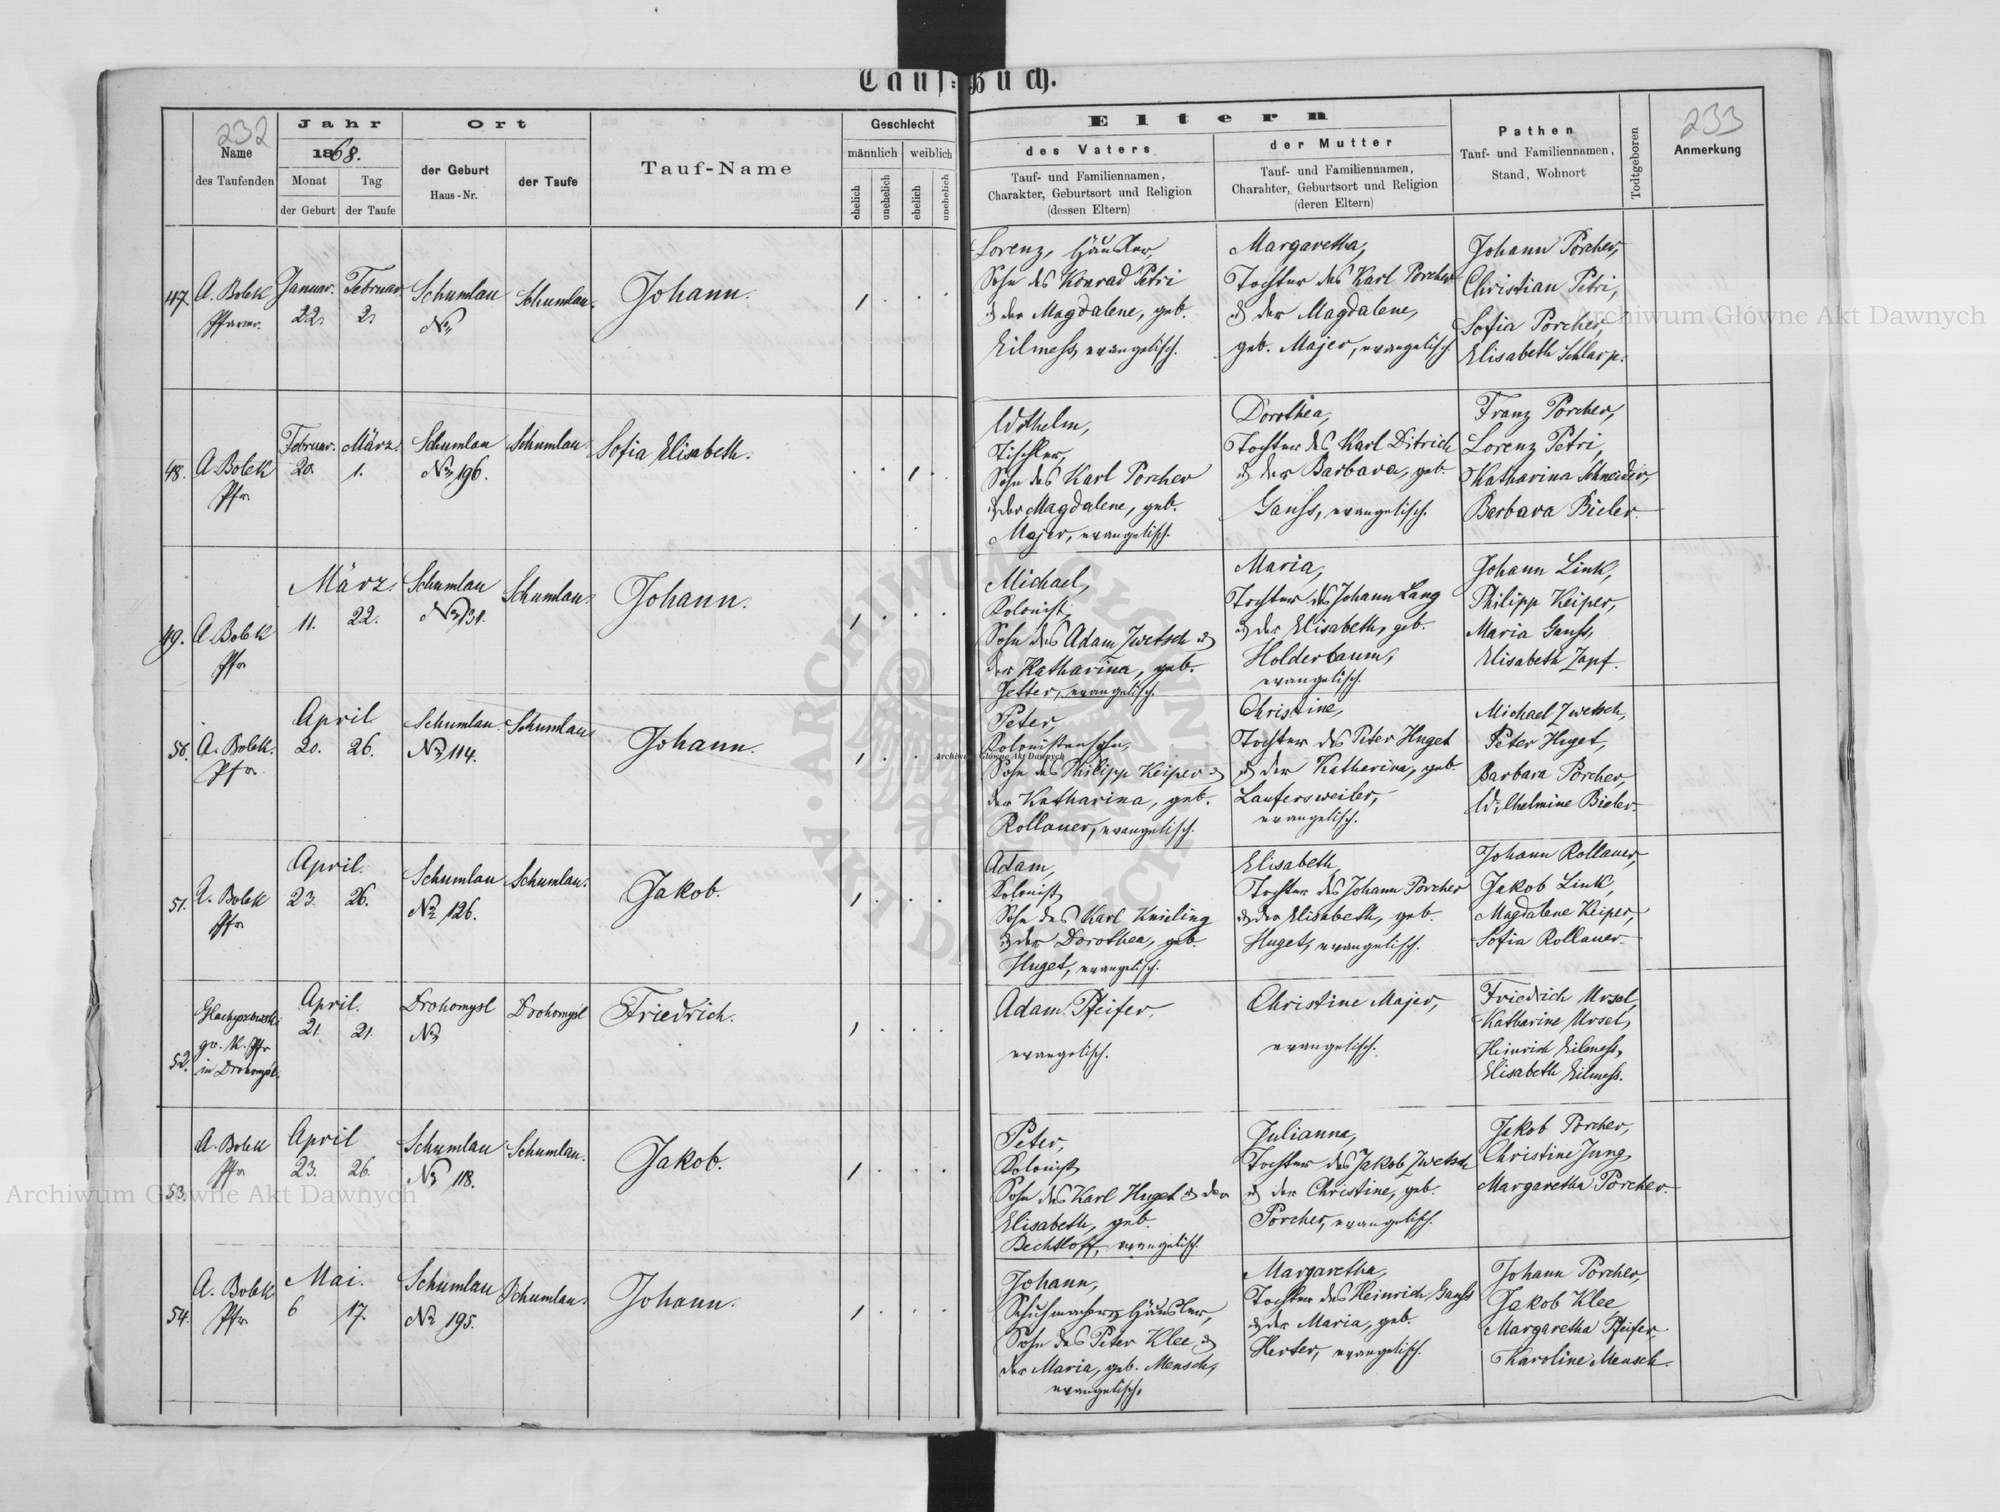 Tauf-Buch.
232
233
Name
des Taufenden
Jahr
1868.
Monat
der Geburt
Tag
der Taufe
Ort
der Geburt
Haus-Nr.
der Taufe
Tauf-Name
Geschlecht
männlich
weiblich
ehelich
unehelich
ehelich
unehelich
Eltern
des Vaters
Tauf- und Familiennamen,
Charakter, Geburtsort und Religion
(dessen Eltern)
der Mutter
Tauf- und Familiennamen,
Charakter, Geburtsort und Religion
(deren Eltern)
Pathen
Tauf- und Familiennamen,
Stand, Wohnort
Todtgeboren
Anmerkung
47.
A. Bolek
Pfarrer.
Januar.
22.
Februar.
2.
Schumlau
No
Schumlau.
Johann.
1
Lorenz, Häusler,
Sohn des Konrad Petri
& der Magdalene, geb.
Eilmess, evangelisch.
Margaretha,
Tochter des Karl Porcher
& der Magdalene,
geb. Majer, evangelisch.
Johann Porcher,
Christian Petri,
Sofia Porcher,
Elisabeth Schlarp.
48.
A. Bolek
Pfr
Februar.
20.
März.
1.
Schumlau
No 196.
Schumlau.
Sofia Elisabeth.
1
Wilhelm,
Tischler,
Sohn des Karl Porcher
& der Magdalene, geb.
Majer, evangelisch.
Dorothea,
Tochter des Karl Ditrich
& der Barbara, geb.
Gauss, evangelisch.
Franz Porcher,
Lorenz Petri,
Katharina Schneider,
Barbara Bieler.
49.
A. Bolek
Pfr
März.
11.
22.
Schumlau
No 131.
Schumlau.
Johann.
1
Michael,
Kolonist,
Sohn des Adam Zwetsch &
der Katharina, geb.
Jetter, evangelisch.
Maria,
Tochter des Johann Lang
& der Elisabeth, geb.
Holderbaum,
evangelisch.
Johann Link,
Philipp Keiper,
Maria Gauss,
Elisabeth Zapf.
50.
A. Bolek.
Pfr
April
20.
26.
Schumlau
No 114.
Schumlau
Johann.
1
Peter,
Kolonistensohn,
Sohn des Philipp Keiper &
der Katharina, geb.
Rollauer, evangelisch.
Christine,
Tochter des Peter Huget
& der Katharina, geb.
Laufersweiler,
evangelisch.
Michael Zwetsch,
Peter Huget,
Barbara Porcher,
Wilhelmine Bieler.
51.
A. Bolek
Pfr
April.
23.
26.
Schumlau
No 126.
Schumlau.
Jakob.
1
Adam,
Kolonist,
Sohn des Karl Knieling
& der Dorothea, geb.
Huget, evangelisch.
Elisabeth,
Tochter des Johann Porcher
& der Elisabeth, geb.
Huget, evangelisch.
Johann Rollauer,
Jakob Link,
Magdalene Keiper,
Sofia Rollauer.
52.
gr. k. Pfr
in Drohomysl.
April.
21.
21.
Drohomysl
No
Drohomysl
Friedrich.
1
Adam Pfeifer,
evangelisch.
Christine Majer,
evangelisch.
Friedrich Ursel,
Katharine Ursel,
Heinrich Eilmess,
Elisabeth Eilmess.
53.
A. Bolek
Pfr
April
23.
26.
Schumlau
No 118.
Schumlau.
Jakob.
1
Peter,
Kolonist,
Sohn des Karl Huget & der
Elisabeth, geb.
Bechtloff, evangelisch.
Julianna,
Tochter des Jakob Zwetsch
& der Christine, geb.
Porcher, evangelisch.
Jakob Porcher,
Christine Jung,
Margaretha Porcher.
54.
A. Bolek
Pfr.
Mai.
6
17.
Schumlau
No 195.
Schumlau.
Johann.
1
Johann,
Schuhmacher & Häusler,
Sohn des Peter Klee &
der Maria, geb. Mensch,
evangelisch.
Margaretha,
Tochter des Heinrich Gauss
& der Maria, geb.
Herter, evangelisch.
Johann Porcher,
Jakob Klee,
Margaretha Pfeifer,
Karoline Mensch.
Archiwum Główne Akt Dawnych
Archiwum Główne Akt Dawnych
Archiwum Główne Akt Dawnych
ARCHIWUM GŁÓWNE AKT DAWNYCH